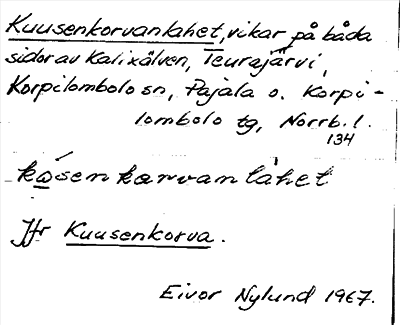 Kuusenkorvanlahet, vikar på båda
sidor av Kalixälven, Teurajärvi,
Korpilombolo sn, Pajala o. Korpi-
lombolo tg, Norrb. l.
134
kósenkorvanlàhet
Jfr Kuusenkorva.
Eivor Nylund 1967.